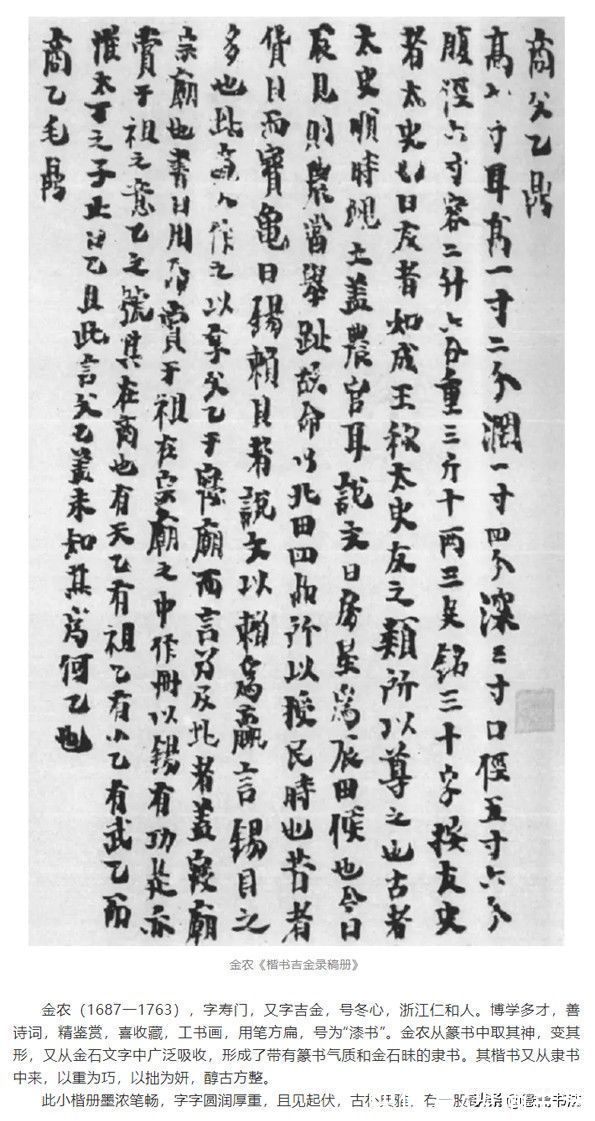 商父乙鼎
高寸耳高一寸二分濶一寸四分深三寸口徑五寸六分
腹徑六寸容二升六合重三斤十兩三足銘三十字按友史
者太史曰友者如成王称太史友之類所以尊之也古者
太史順時覛土蓋農官耳說文曰房星為辰田候也今曰
辰見則農當舉趾故命以北田四品所以授民時也昔者
貨貝而寶龜曰錫賴貝者說文以賴為贏言錫貝之
多也此商人作之以享父乙于寢廟而言北者蓋寢廟
宗廟也書曰用命賞于祖在宗廟之中作冊以錫有功是亦
賞于祖之意乙之號其在商也有天乙有祖乙有小乙有武乙而
惟太丁之子止曰乙且此言父乙蓋未知其為何乙也
商乙毛鼎
金农《楷书吉金录稿册》
金农（1687—1763），字寿门，又字吉金，号冬心，浙江仁和人。博学多才，善
诗词，精鉴赏，喜收藏，工书画，用笔方扁，号为“漆书”。金农从篆书中取其神，变其
形，又从金石文字中广泛吸收，形成了带有篆书气质和金石昧的隶书。其楷书又从隶书
中来，以重为巧，以拙为妍，醇古方整。
此小楷册墨浓笔畅，字字圆润厚重，且见起伏，古朴典雅，有一股